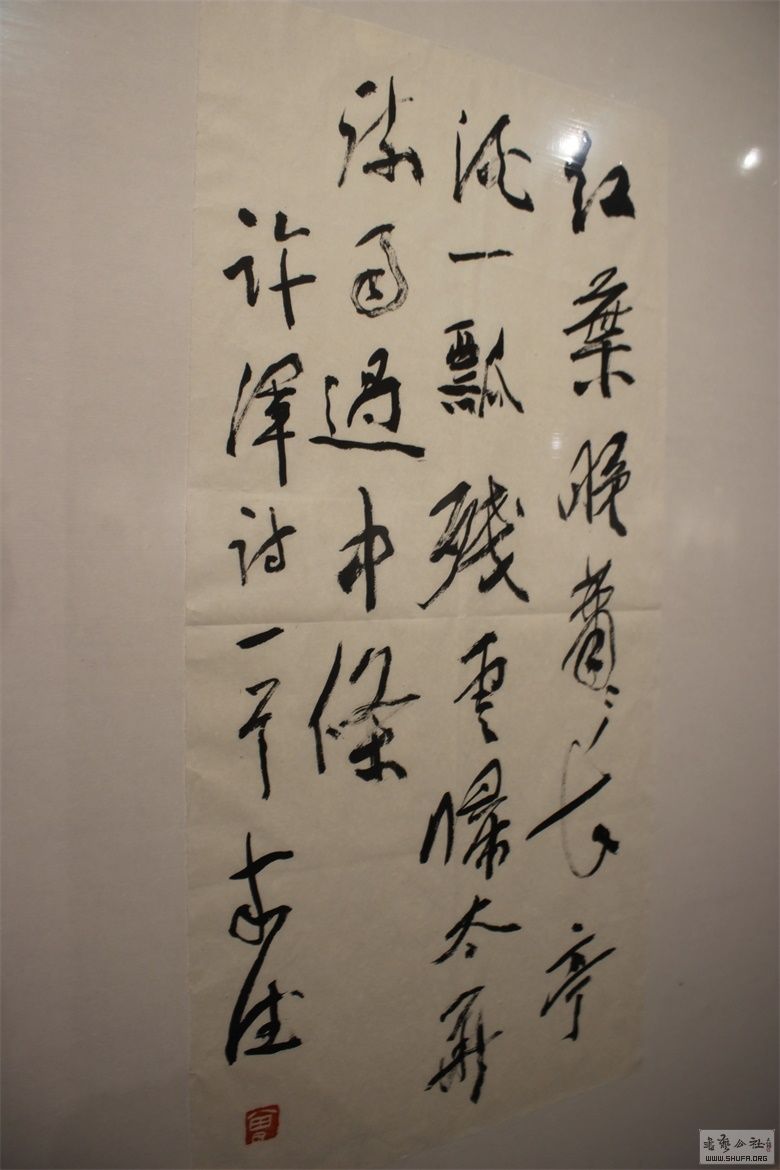 紅葉晚蕭〻長亭
酒一瓢殘雲歸太華
疏雨過中條
許渾詩一首 來德
曾
書藝公社
WWW.SHUFA.ORG